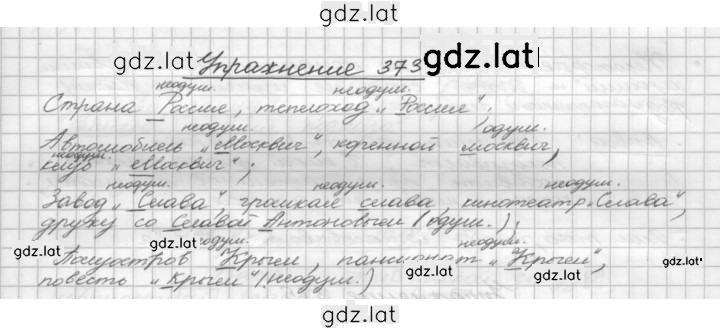 gdz.latl
gdz.latl
Упражнение 373
gdz.latl
неодуш. неодуш.
Страна Россия, теплоход „Россия“;
неодуш. одуш.
Автомобиль „Москвич“, коренной москвич,
неодуш.
клуб „Москвич“;
неодуш. неодуш. неодуш.
Завод „Слава“, громкая слава, кинотеатр „Слава“,
дружу со Славой Антоновым (одуш.);
gdz.lat неодуш. gdz.lat неодуш. gdz.lat
Полуостров Крым, пансионат „Крым“,
gdz.lat gdz.lat
повесть „Крым“ (неодуш.)
gdz.lat
gdz.lat